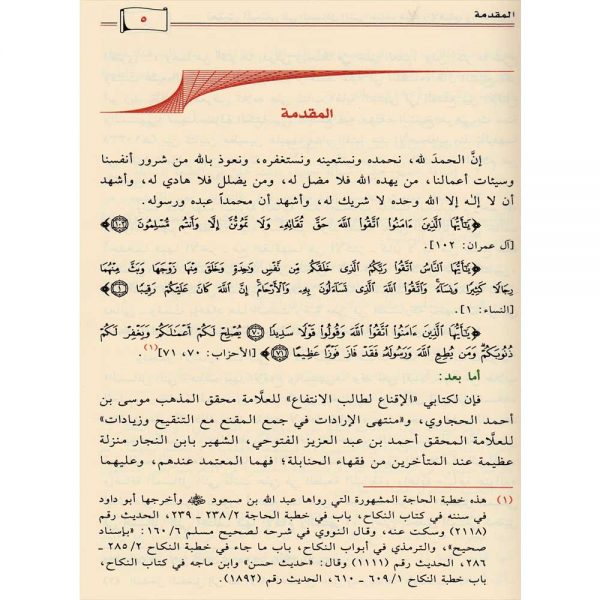 المقدمة
٥
المقدمة
إنَّ الحمدَ لله، نحمده ونستعينه ونستغفره، ونعوذ بالله من شرور أنفسنا
وسيئات أعمالنا، من يهده الله فلا مضل له، ومن يضلل فلا هادي له، وأشهد
أن لا إلٰه إلا الله وحده لا شريك له، وأشهد أن محمداً عبده ورسوله.
﴿يَٰٓأَيُّهَا الَّذِينَ ءَامَنُوا اتَّقُوا اللَّهَ حَقَّ تُقَاتِهِۦ وَلَا تَمُوتُنَّ إِلَّا وَأَنتُم مُّسْلِمُونَ ١٠٢﴾
[آل عمران: ١٠٢].
﴿يَٰٓأَيُّهَا النَّاسُ اتَّقُوا رَبَّكُمُ الَّذِى خَلَقَكُم مِّن نَّفْسٍ وَٰحِدَةٍ وَخَلَقَ مِنْهَا زَوْجَهَا وَبَثَّ مِنْهُمَا
رِجَالًا كَثِيرًا وَنِسَآءً وَاتَّقُوا اللَّهَ الَّذِى تَسَآءَلُونَ بِهِۦ وَالْأَرْحَامَ إِنَّ اللَّهَ كَانَ عَلَيْكُمْ رَقِيبًا ١﴾
[النساء: ١].
﴿يَٰٓأَيُّهَا الَّذِينَ ءَامَنُوا اتَّقُوا اللَّهَ وَقُولُوا قَوْلًا سَدِيدًا ٧٠ يُصْلِحْ لَكُمْ أَعْمَٰلَكُمْ وَيَغْفِرْ لَكُمْ
ذُنُوبَكُمْ وَمَن يُطِعِ اللَّهَ وَرَسُولَهُ فَقَدْ فَازَ فَوْزًا عَظِيمًا ٧١﴾ [الأحزاب: ٧٠، ٧١](١).
أما بعد:
فإن لكتابي «الإقناع لطالب الانتفاع» للعلَّامة محقق المذهب موسى بن
أحمد الحجاوي، و«منتهى الإرادات في جمع المقنع مع التنقيح وزيادات»
للعلَّامة المحقق أحمد بن عبد العزيز الفتوحي، الشهير بابن النجار منزلة
عظيمة عند المتأخرين من فقهاء الحنابلة؛ فهما المعتمد عندهم، وعليهما
(١) هذه خطبة الحاجة المشهورة التي رواها عبد الله بن مسعود ﷺ وأخرجها أبو داود
في سننه في كتاب النكاح، باب في خطبة الحاجة ٢/٢٣٨ ـ ٢٣٩، الحديث رقم
(٢١١٨) وسكت عنه، وقال النووي في شرحه لصحيح مسلم ٦/١٦٠: «بإسناد
صحيح»، والترمذي في أبواب النكاح، باب ما جاء في خطبة النكاح ٢/٢٨٥ ـ
٢٨٦، الحديث رقم (١١١١) وقال: «حديث حسن» وابن ماجه في كتاب النكاح،
باب خطبة النكاح ١/٦٠٩ ـ ٦١٠، الحديث رقم (١٨٩٢).